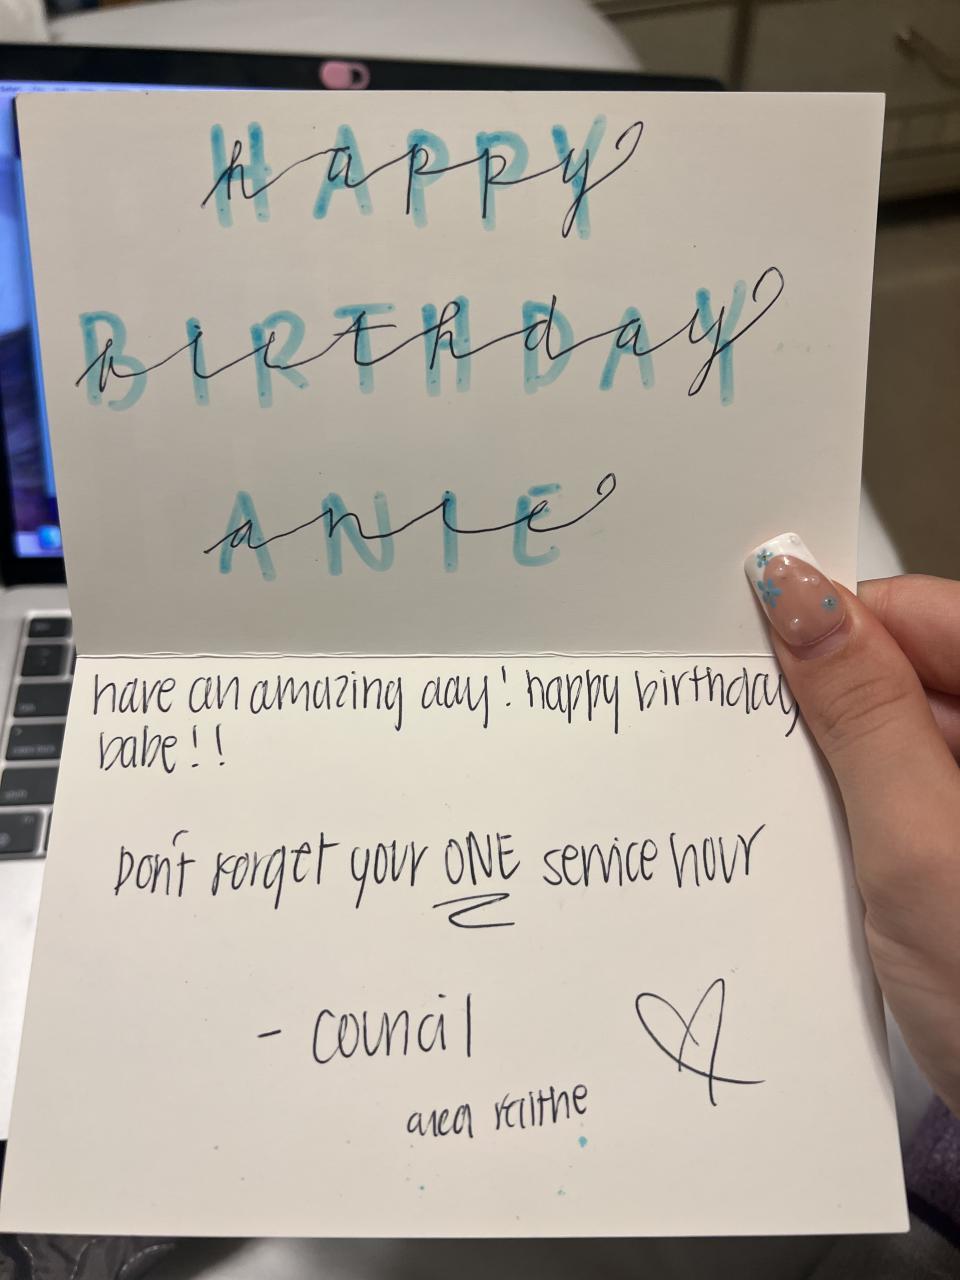 HAPPY
happy
BIRTHDAY
birthday
ANIE
anie
have an amazing day! happy birthday
babe!!
Don't forget your ONE service hour
- council